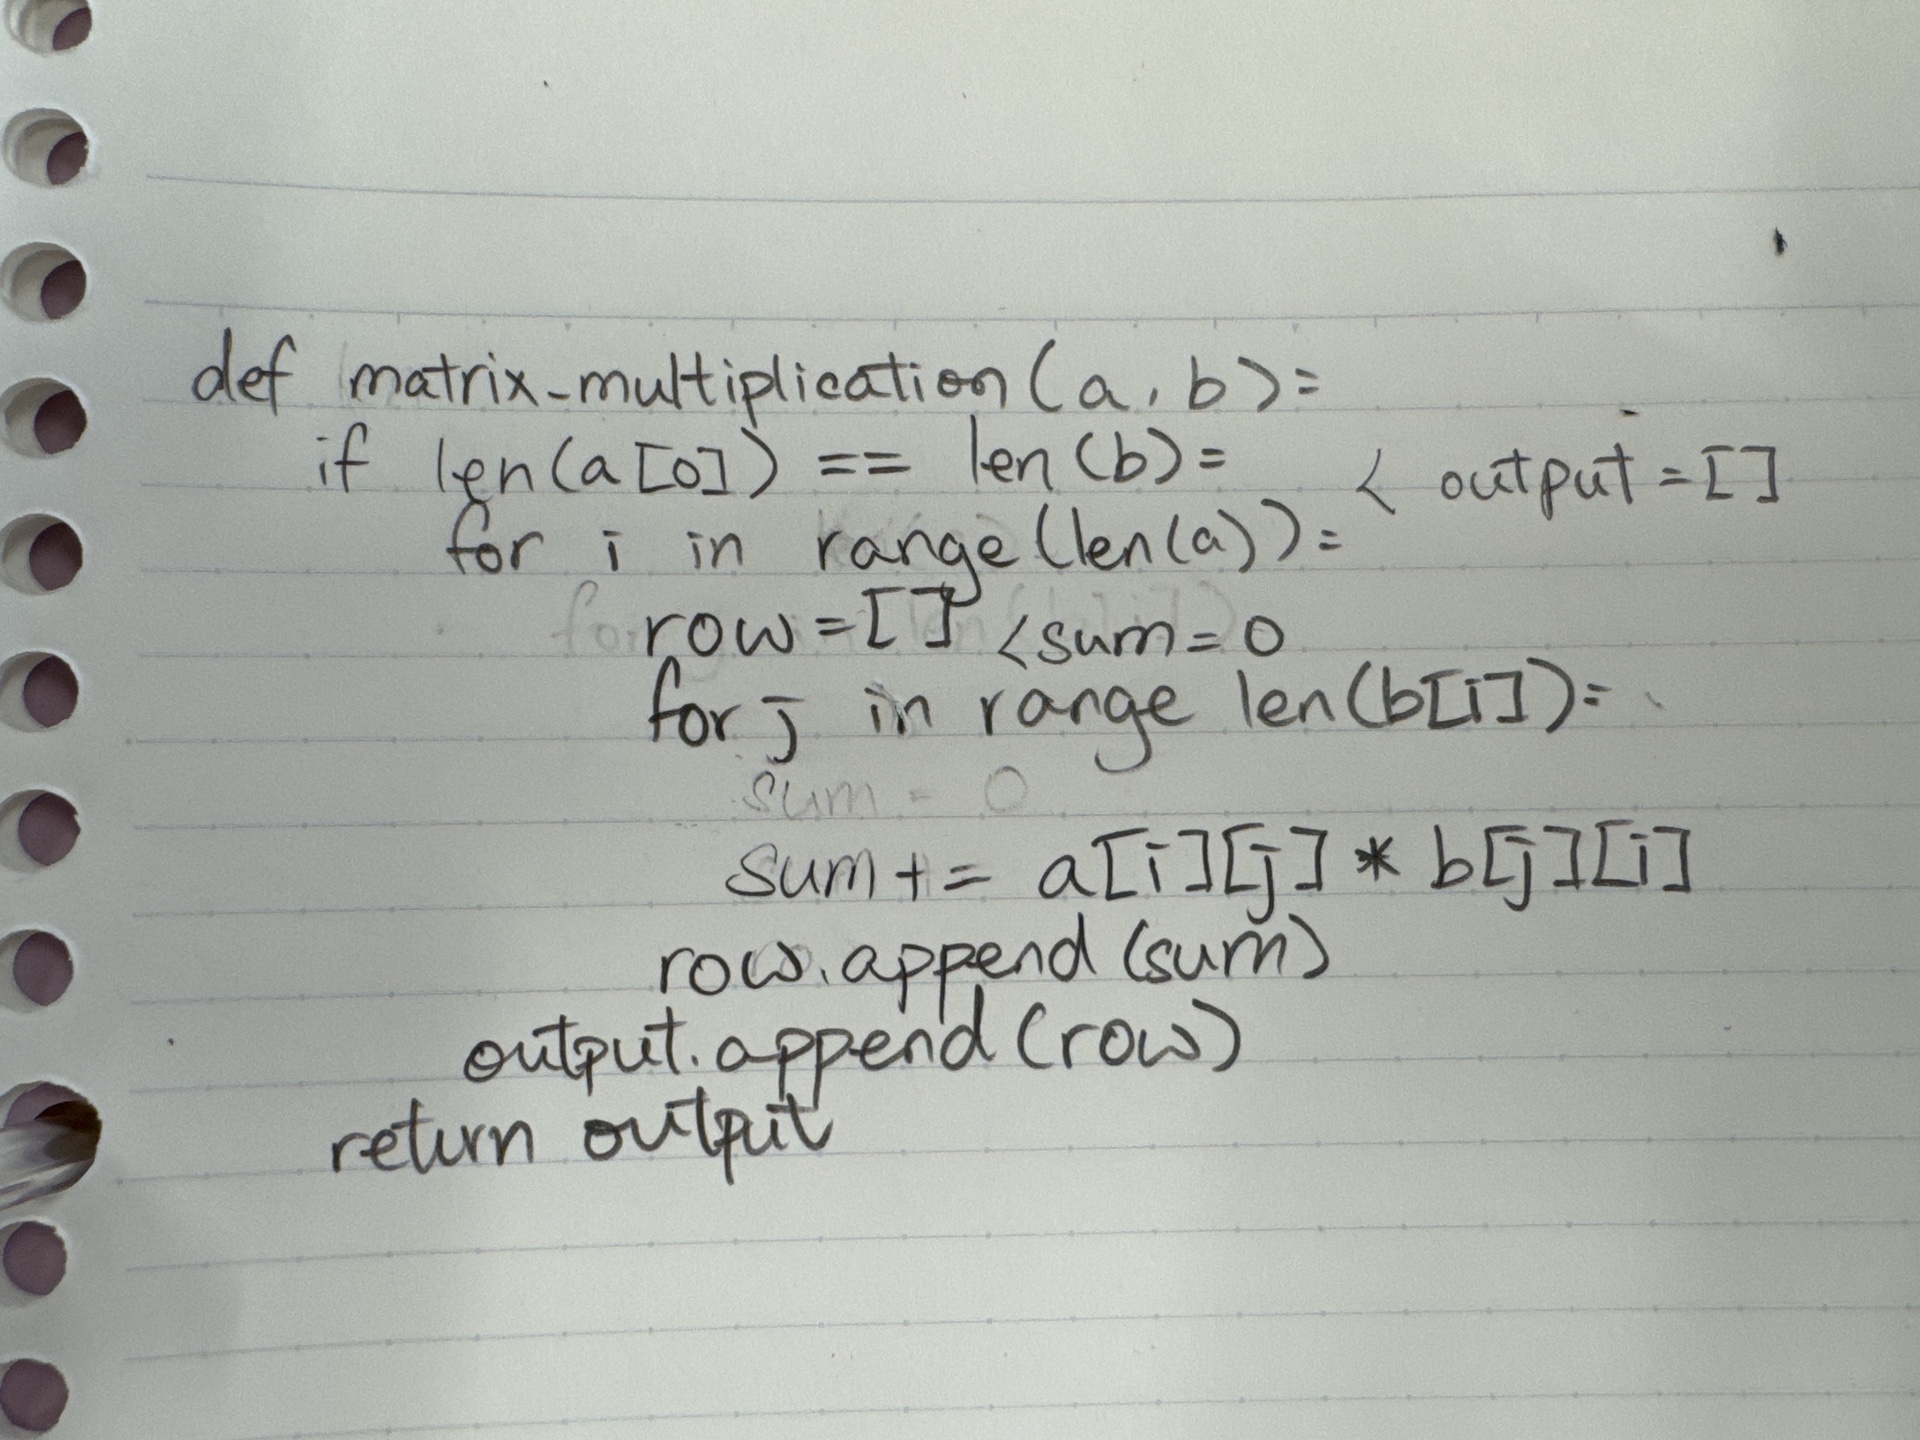 def matrix_multiplication(a, b):
if len(a[0]) == len(b): < output = []
for i in range(len(a)):
row = [] < sum = 0
for j in range len(b[i]):
sum = 0
sum += a[i][j] * b[j][i]
row.append(sum)
output.append(row)
return output